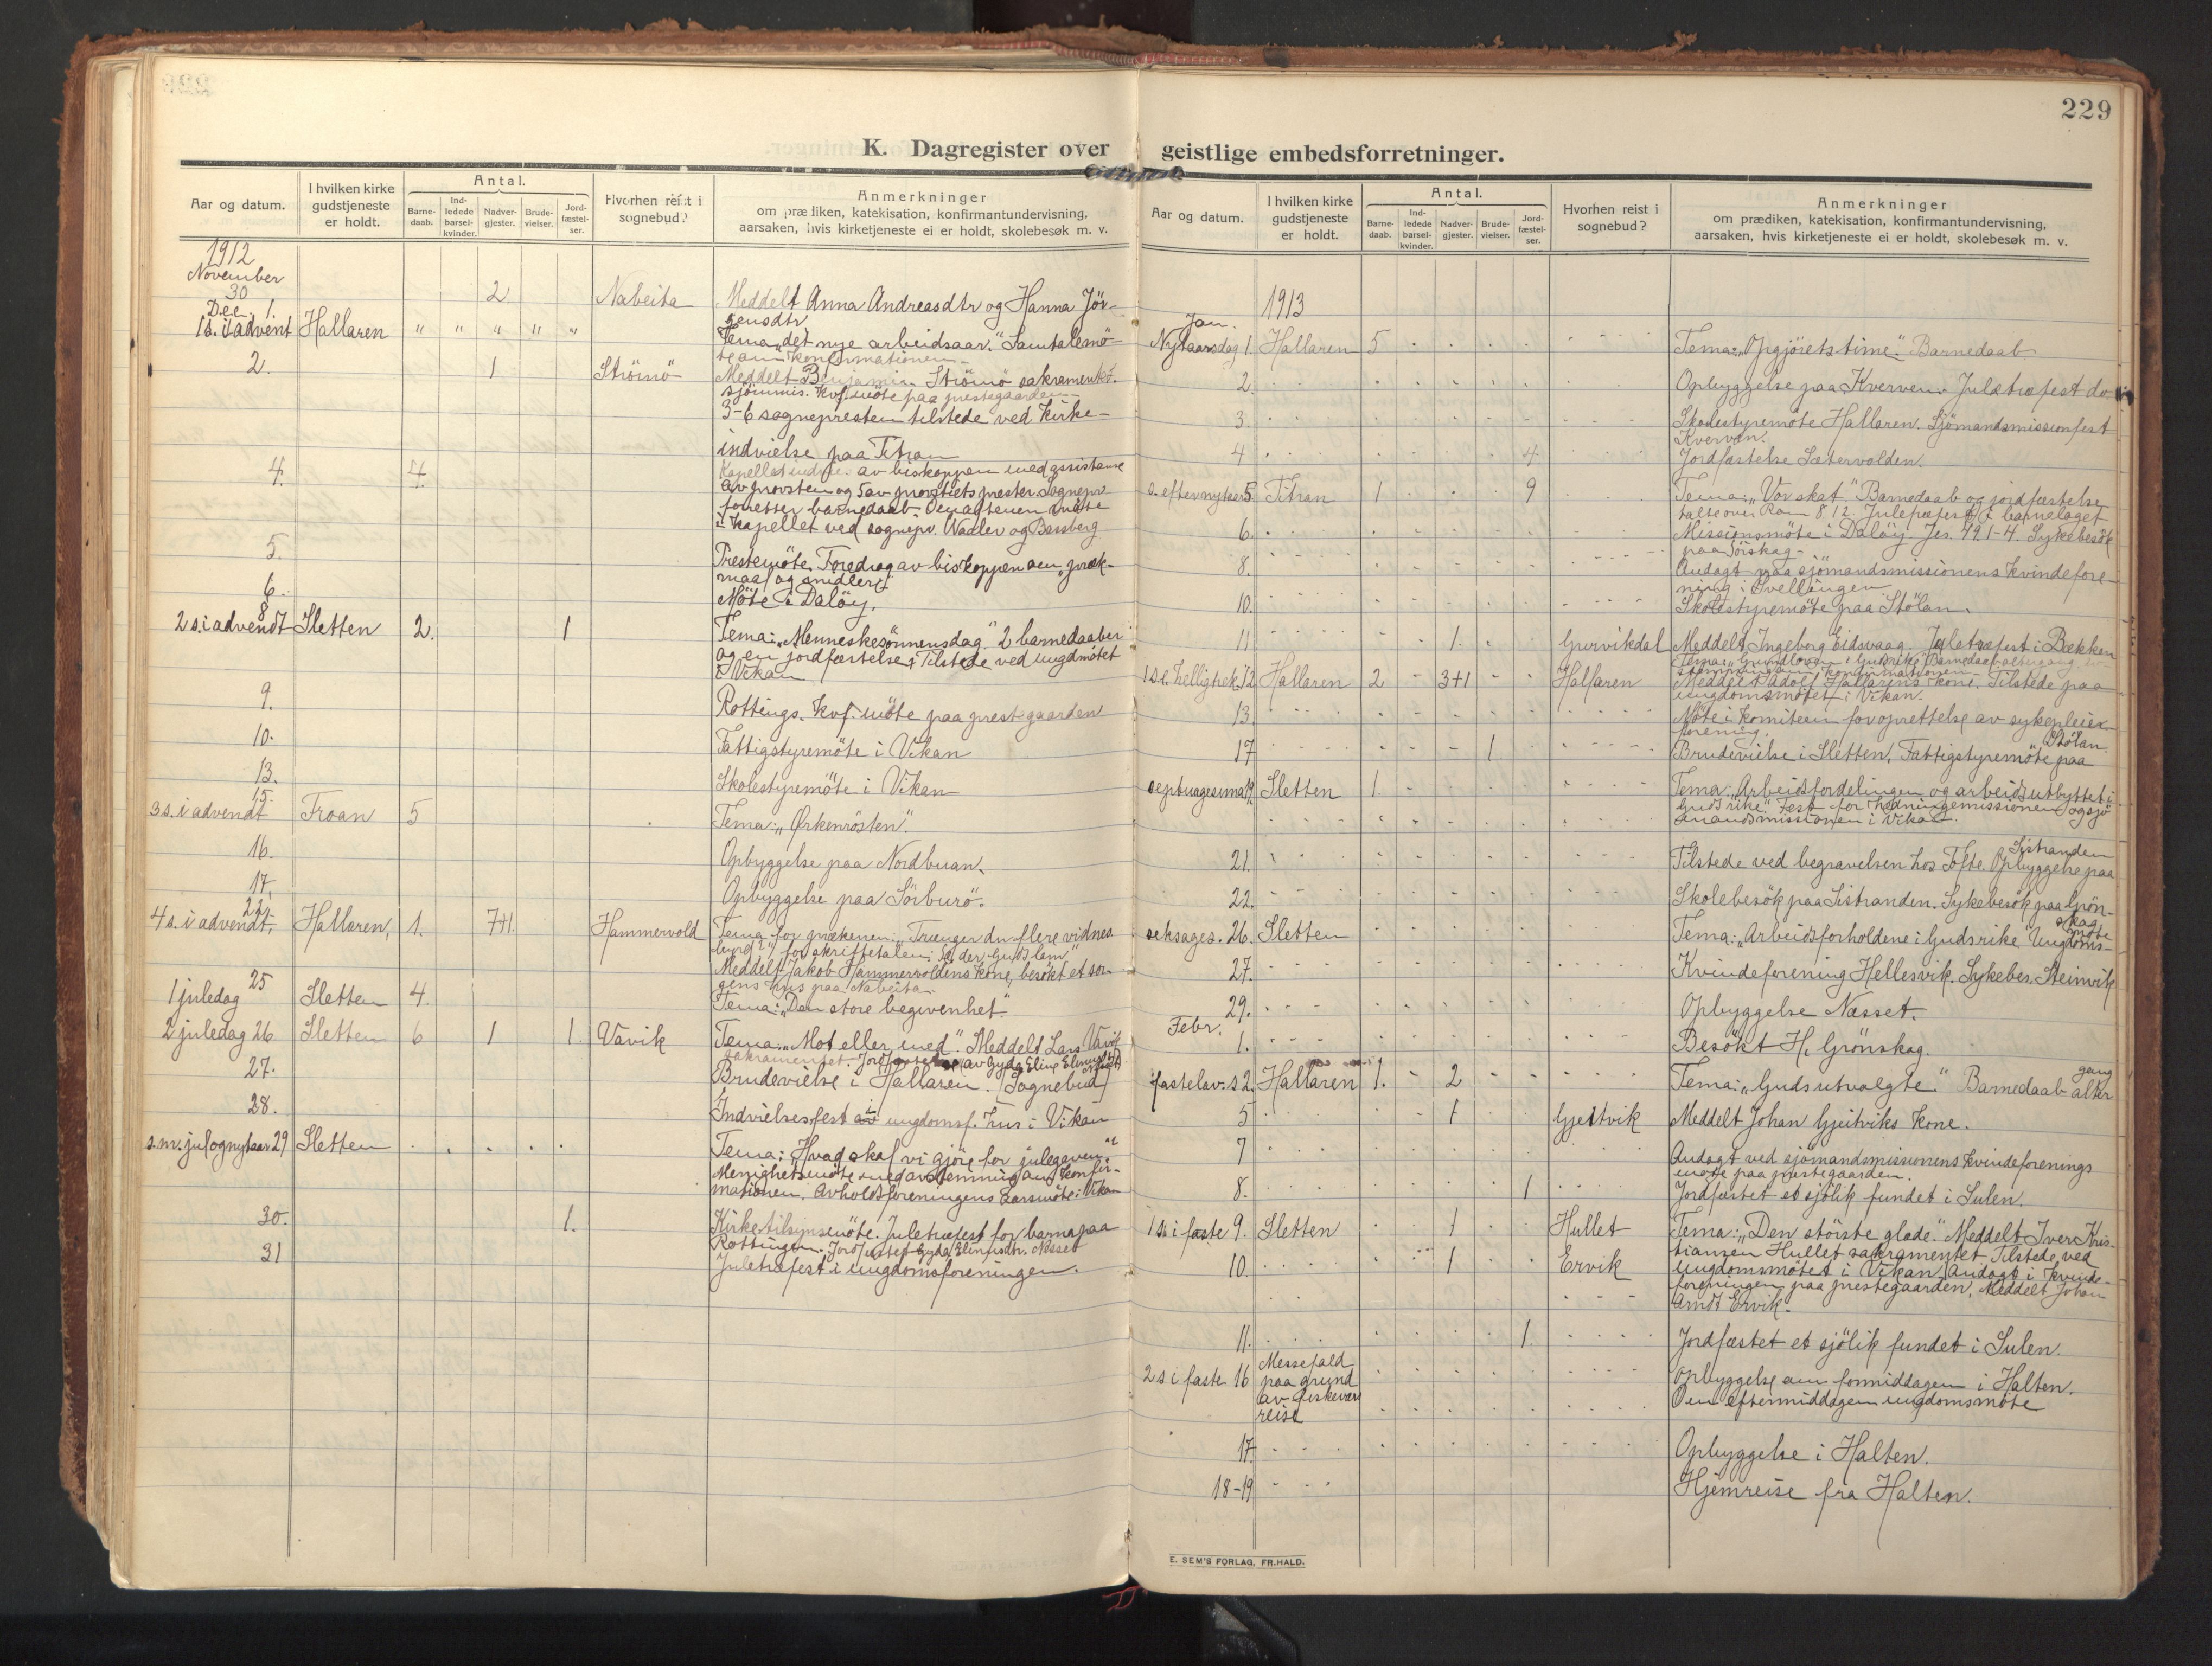 229
K. Dagregister over geistlige embedsforretninger.
Aar og datum.
I hvilken kirke gudstjeneste er holdt.
Antal.
Barne-daab.
Ind-ledede barsel-kvinder.
Nadver-gjester.
Brude-vielser.
Jord-fæstel-ser.
Hvorhen reist i sognebud?
Anmerkninger
om prædiken, katekisation, konfirmantundervisning,
aarsaken, hvis kirketjeneste ei er holdt, skolebesøk m. v.
1912
November
30 2 Nabeita Meddelt Anna Andreasdtr og Hanna Jör-
gensdtr
Dec. 1.
1 s. i advent Hallaren " " " " " Tema „det nye arbeidsaar." Samtalemö-
te om konfirmationen
2. 1 Strömö Meddelt Benjamin Strömö sakramentet.
sjömmis. kvf. möte paa prestegaarden
3-6 sognepresten tilstede ved kirke-
indvielse paa Titran
4. 4. Kapellet av biskoppen med assistanse
av provsten og 5 av provstiets prester. Sognepr
forretter barnedaab. Om aftenen möte
i kapellet ved sognepr. Wadler og Bassberg
5. Prestemöte. Foredrag av biskoppen om „præk-
maal og midler"
6. Möte i Dalöy.
8
2 s. i advendt Sletten 2. 1 Tema: „Menneskesönnensdag." 2 barnedaaber
og en jordfæstelse; Tilstede ved ungdmötet
i Vikan
9. Rottings. kvf. möte paa prestegaarden
10. Fattigstyremöte i Vikan
13. Skolestyremöte i Vikan
15.
3 s. i advendt Froan 5 Tema: „Ørkenrösten".
16. Opbyggelse paa Nordbuan.
17. Opbyggelse paa Sörburö.
22.
4 s. i advendt, Hallaren, 1. 7+1. Hammervold Tema for prækenen: „Trænger du flere vidnes
byrd?" for skriftetalen: Se der Guds lam"
Meddelt Jakob Hammervoldens kone, besökt et sor-
gens hus paa Nabeita.
25
1 juledag Sletten 4. Tema: „Den store begivenhet".
2 juledag 26 Sletten 6 1 1. Vavik Tema: „Mot eller med". Meddelt Lars Vavik
sakramentet. av Gyda Eline
27. Brudevielse i Hallaren. [Sognebud]
28. Indvielsesfest i ungdomsf. hus i Vikan
s. m. jul og nytaar 29 Sletten . . . . Tema: „Hvad skal vi gjöre for julegaven"
Menighetsmöte med avstemning om konfir-
mationen. Avholdsforeningens aarsmöte i Vikan
30. 1. Kirketilsynsmöte. Juletræfest for barna paa
Rottingen. Jordfæstet Gyda Elinusdtr. Næsset
31 Juletræfest i ungdomsforeningen.
Aar og datum.
I hvilken kirke gudstjeneste er holdt.
Antal.
Barne-daab.
Ind-ledede barsel-kvinder.
Nadver-gjester.
Brude-vielser.
Jord-fæstel-ser.
Hvorhen reist i sognebud?
Anmerkninger
om prædiken, katekisation, konfirmantundervisning,
aarsaken, hvis kirketjeneste ei er holdt, skolebesøk m. v.
1913
Jan.
Nytaarsdag 1. Hallaren 5 Tema: „Opgjörets time." Barnedaab
2. Opbyggelse paa Kverven. Juletræfest do
3. Skolestyremöte Hallaren. Sjömandsmissionfest
Kverven.
4 4. Jordfæstelse Sætervolden.
s. efter nytaar 5. Titran 1 9 Tema: „Vor skat." Barnedaab og jordfæstelse
tale over Rom 8 12. Juletrefest i barnelaget
6. Missionsmöte i Dalöy. Jes. 49. 1-4. Sykebesök
paa Sörskag
8. Andagt paa sjömandsmissionens kvindefore-
ning i Svellingen
10. Skolestyremöte paa Stölan.
11 1. Gurvikdal Meddelt Ingeborg Eidsvaag. Juletræfest i Bækken
1 s. e. helligtrek. 12 Hallaren 2 3+1 Hallaren Tema: „Grundloven i Gudsrike" Barnedaab
Meddelt Adolf Hallarens kone. Tilstede paa
ungdomsmötet i Vikan.
13. Möte i komiteen for oprettelse av sykepleier
forening.
17 1. Brudevielse i Sletten. Fattigstyremöte paa Stölan.
septuagesima 19. Sletten 1. Tema: „Arbeidsfordelingen og arbeidsutbyttet i
Guds rike" Fest for hedningemissionen og sjö
mandsmissionen i Vikan.
21. Tilstede ved begravelsen hos Tofte. Opbyggelse paa Sistranden
22. Skolebesök paa Sistranden. Sykebesök paa Grön-
skag
seksages. 26. Sletten Tema: „Arbeidsforholdene i Gudsrike" Ungdoms-
möte
27. Kvindeforening Hellesvik. Sykebes. Steinvik
29. Opbyggelse Næsset.
Febr.
1. Besökt H. Grönskag.
fastelav. s 2. Hallaren 1. 2 Tema: „Guds utvalgte." Barnedaab alter
gang
5 1 Gjeitvik Meddelt Johan Gjeitviks kone.
7 Andagt ved sjömandsmissionens kvindeforenings
möte paa prestegaarden.
8. 1 Jordfæstet et sjölik fundet i Sulen.
1 s i faste 9. Sletten 1 Hullet Tema: „Den störste glede." Meddelt Iver Kris-
tiansen Hullet sakramentet. Tilstede ved
10. 1 Ervik ungdomsmötet i Vikan. Andagt i kvinde-
foreningen paa prestegaarden. Meddelt Johan
Arnds Ervik.
11. 1. Jordfæstet et sjölik fundet i Sulen.
2 s i faste 16 Messefald
paa grund
av fiskevær
reise
Opbyggelse om formiddagen i Halten.
Om eftermiddagen ungdomsmöte
17. Opbyggelse i Halten.
18-19 Hjemreise fra Halten.
E. SEM'S FORLAG, FR.HALD.